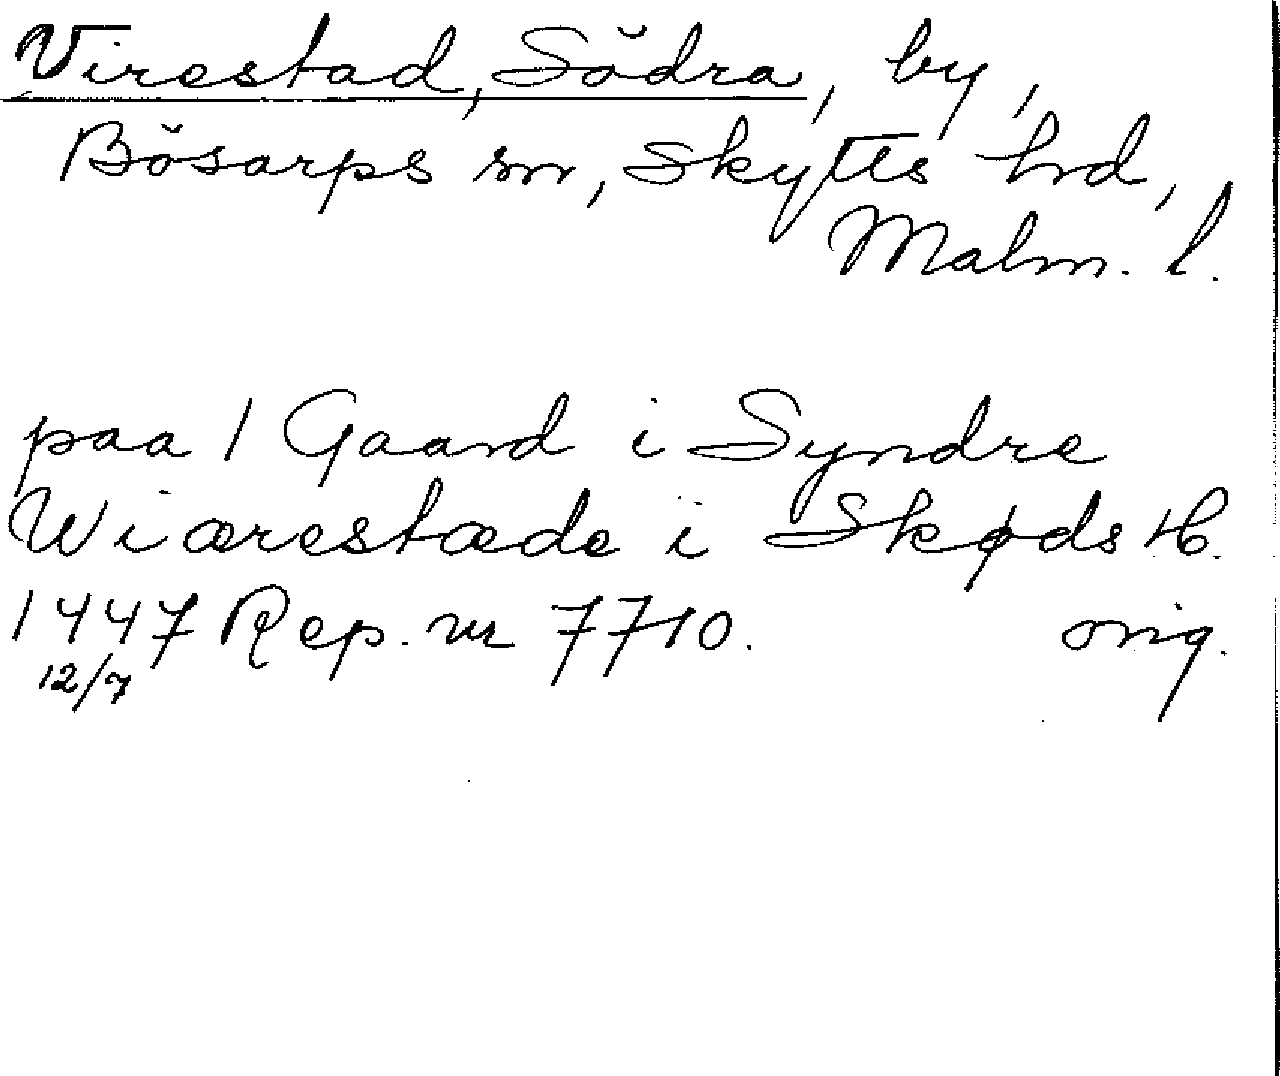 Virestad, Södra, by,
Bösarps sn, Skytts hd,
Malm. l.
paa 1 Gaard i Syndre
Wiærestæde i Skøds H.
1447 Rep. nr 7710. orig.
12/7